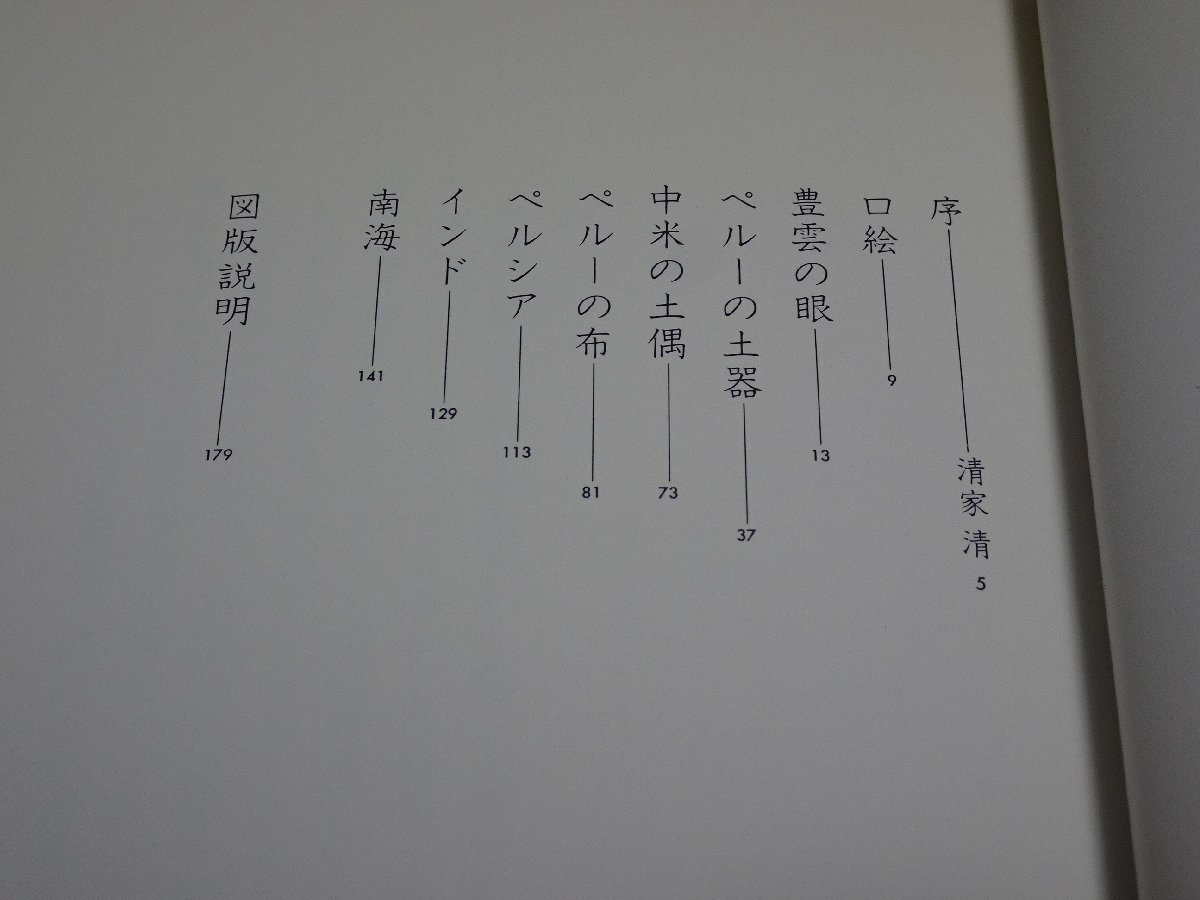 序──清家 清 5
口絵──9
豊雲の眼──13
ペルーの土器──37
中米の土偶──73
ペルーの布──81
ペルシア──113
インド──129
南海──141
図版説明──179